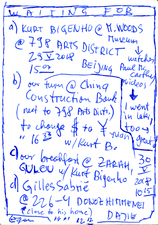 WAITING FOR
a) KURT BIGENHO @ M. WOODS
Museum
@ 798 ARTS DISTRICT
29 V 2018 BEIJING
15.00
watched
Paul Mc
carthy
videos
b) our turn @ China
Construction Bank
(next to 798 Arts Distr.)
to change $ to ¥
16 w/ Kurt B.
I went
in later
too
great
c) our breakfast @ ZARAH,
GULOU w/ Kurt Bigenho
30
V
2018
10
d) Gilles Sabrié
@ 226-4 DONGZHIMENNEI
(close to his home) DAJIE